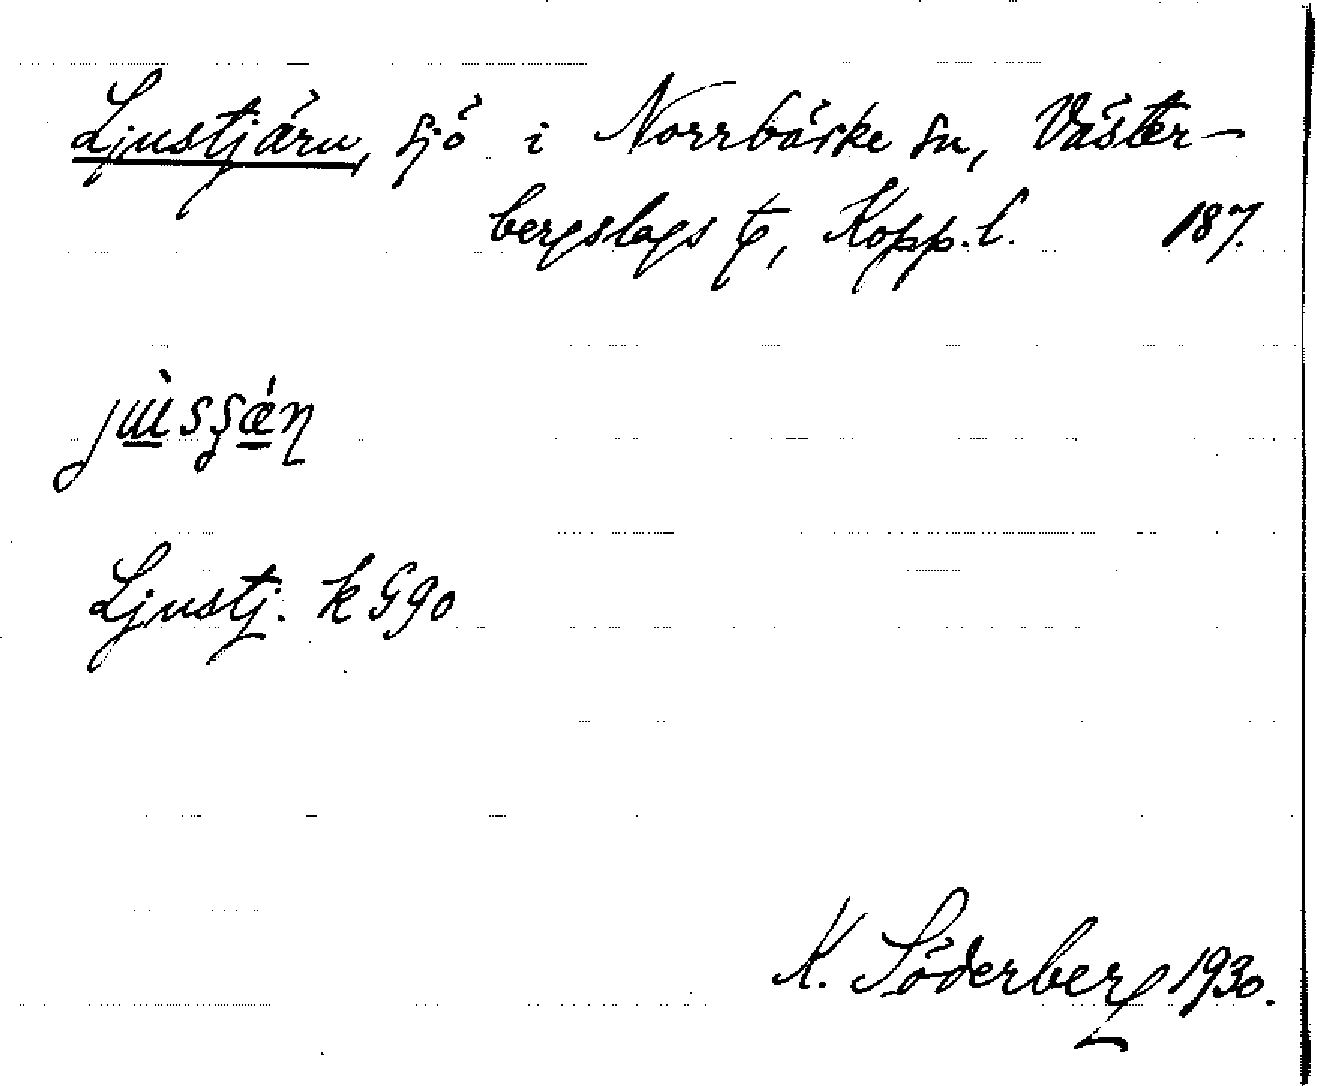 Ljustjärn, sjö i Norrbärke sn, Väster-
bergslags tg, Kopp. l. 187.
Ljustj. k G90
K. Söderberg 1930.